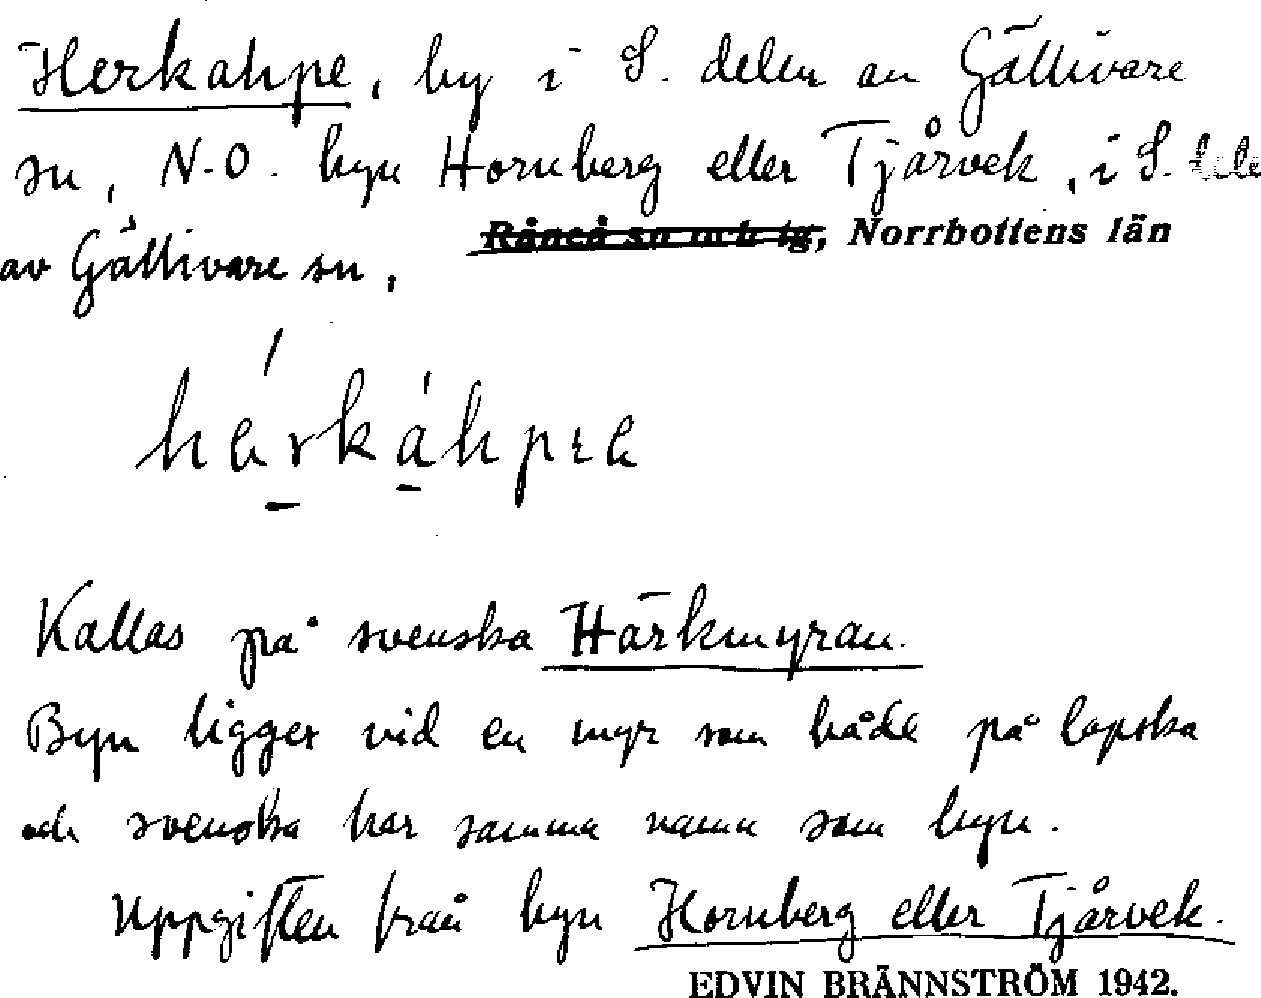 Herkahpe, by i S. delen av Gällivare
sn, N.O. byn Hornberg eller Tjårvek, i S. dele
Råneå sn och tg, Norrbottens län
av Gällivare sn,
hérkáhpɛ
Kallas på svenska Härkmyran.
Byn ligger vid en myr som både på lapska
och svenska har samma namn som byn.
Uppgiften från byn Hornberg eller Tjårvek.
EDVIN BRÄNNSTRÖM 1942.